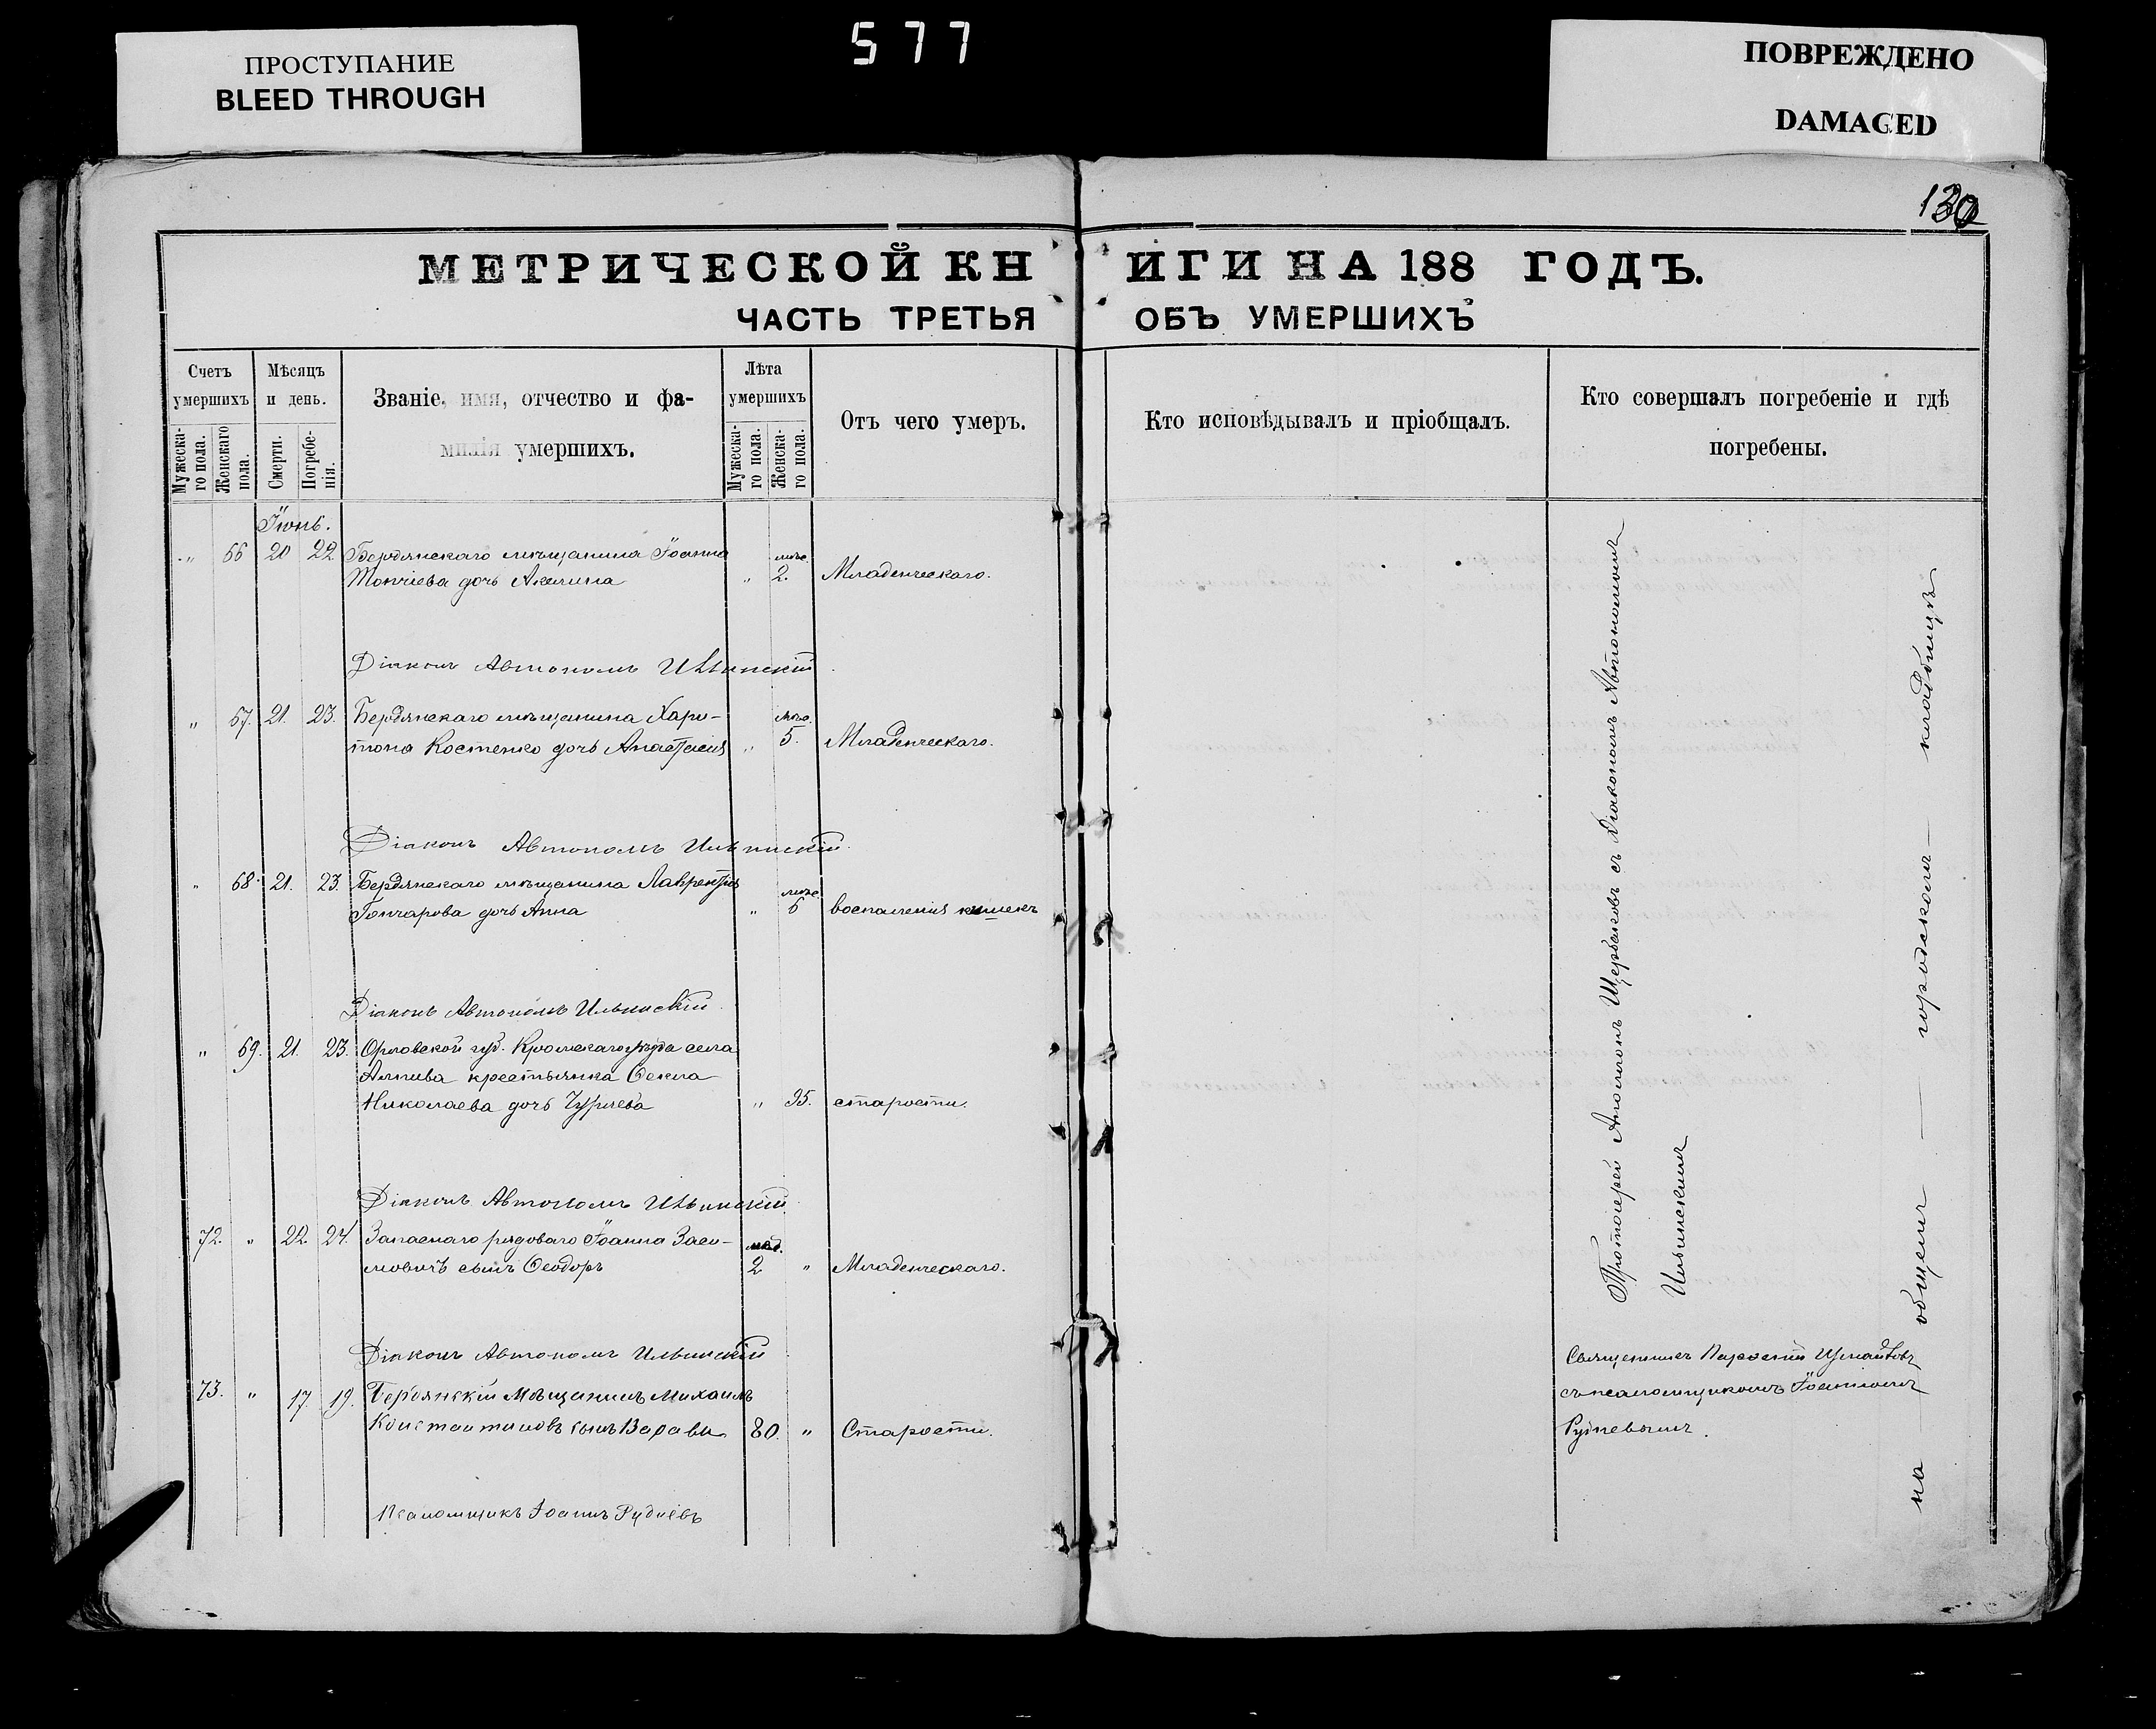 ПРОСТУПАНИЕ
BLEED THROUGH
577
ПОВРЕЖДЕНО
DAMAGED
130
МЕТРИЧЕСКОЙ КНИГИ НА 188 ГОДЪ.
ЧАСТЬ ТРЕТЬЯ ОБЪ УМЕРШИХЪ
Счетъ умершихъ
Мужескаго пола.
Женскаго пола.
Мѣсяцъ и день.
Смерти.
Погребенія.
Званіе, имя, отчество и фа-
милія умершихъ.
Лѣта умершихъ
Мужескаго пола.
Женскаго пола.
Отъ чего умеръ.
Кто исповѣдывалъ и пріобщалъ.
Кто совершалъ погребеніе и гдѣ
погребены.
Іюнь.
" 66 20 22 Бердянскаго мѣщанина Іоанна мѣс.
дочь Акилина " 2. Младенческаго.
Діаконъ Автономъ Ильинскій
" 67. 21. 23. Бердянскаго мѣщанина Хари-
тона Костенко дочь Анастасія " 5. Младенческаго.
Діаконъ Автономъ Ильинскій.
" 68. 21. 23. Бердянскаго мѣщанина Лаврентія мѣс.
Гончарова дочь Анна " 6 воспаленія кишекъ
Діаконъ Автономъ Ильинскій
" 69. 21. 23. Орловской губ. Кромскаго уѣзда села
крестьянка Ѳекла
Николаева дочь " 95. старости.
Діаконъ Автономъ Ильинскій
72. " 22. 24. Запаснаго рядоваго Іоанна Заси-
мовичъ сынъ Ѳеодоръ 2 " Младенческаго.
Діаконъ Автономъ Ильинскій
73. " 17. 19. Бердянскій Мѣщанинъ Михаилъ
Константиновъ сынъ 80. " Старости.
Псаломщикъ Іоаннъ Рудневъ
Протоіерей Аполлонъ Щербаковъ съ Діакономъ Автономомъ
Ильинскимъ
Священникъ
съ псаломщикомъ Іоанномъ
Рудневымъ.
на общемъ — городскомъ — кладбищѣ